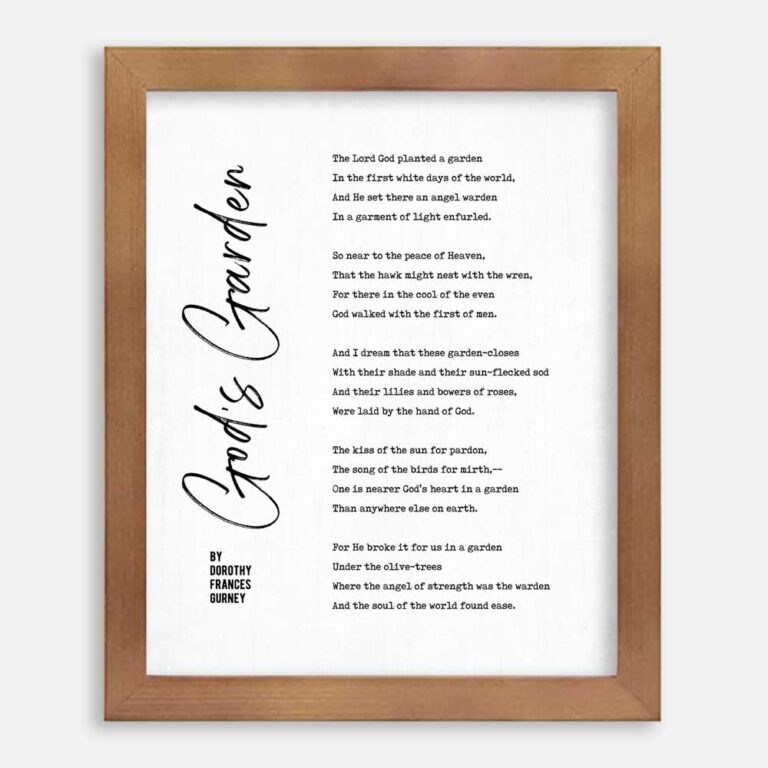 God's Garden
BY
DOROTHY
FRANCES
GURNEY
The Lord God planted a garden
In the first white days of the world,
And He set there an angel warden
In a garment of light enfurled.
So near to the peace of Heaven,
That the hawk might nest with the wren,
For there in the cool of the even
God walked with the first of men.
And I dream that these garden-closes
With their shade and their sun-flecked sod
And their lilies and bowers of roses,
Were laid by the hand of God.
The kiss of the sun for pardon,
The song of the birds for mirth,--
One is nearer God's heart in a garden
Than anywhere else on earth.
For He broke it for us in a garden
Under the olive-trees
Where the angel of strength was the warden
And the soul of the world found ease.